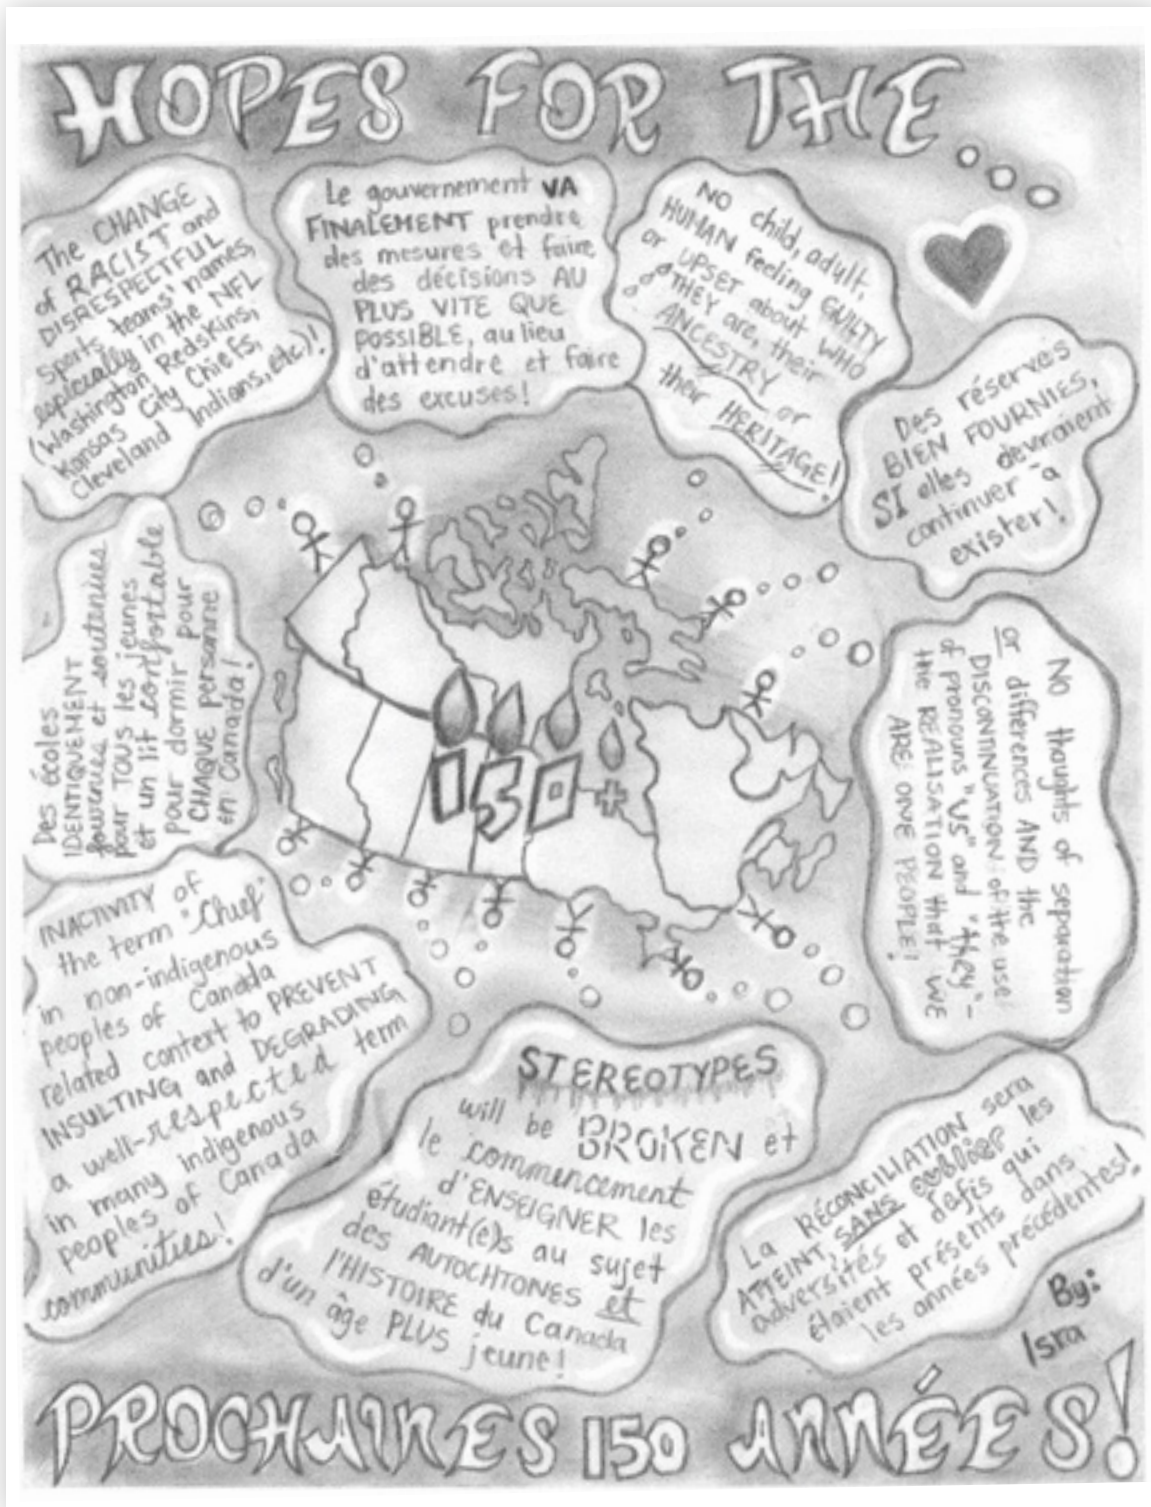 HOPES FOR THE...
The CHANGE
of RACIST and
DISRESPECTFUL
sports teams' names,
espically in the NFL
(Washington Redskins,
Kansas City Chiefs,
Cleveland Indians, etc)!
Le gouvernement VA
FINALEMENT prendre
des mesures et faire
des décisions AU
PLUS VITE QUE
POSSIBLE, au lieu
d'attendre et faire
des excuses!
NO child, adult,
HUMAN feeling GUILTY
or UPSET about WHO
THEY are, their
ANCESTRY or
their HERITAGE!
Des réserves
BIEN FOURNIES,
SI elles devraient
continuer à
exister!
Des écoles
IDENTIQUEMENT
fournies et soutenues
pour TOUS les jeunes
et un lit confortable
pour dormir pour
CHAQUE personne
en Canada!
150+
NO thoughts of separation
or differences AND the
DISCONTINUATION of the use
of pronouns "US" and "they"-
the REALISATION that WE
ARE ONE PEOPLE!
INACTIVITY of
the term "Chief"
in non-indigenous
peoples of Canada
related context to PREVENT
INSULTING and DEGRADING
a well-respected term
in many indigenous
peoples of Canada
communities!
STEREOTYPES
will be BROKEN et
le commencement
d'ENSEIGNER les
étudiant(e)s au sujet
des AUTOCHTONES et
l'HISTOIRE du Canada
d'un âge PLUS jeune!
La RÉCONCILIATION sera
ATTEINT, SANS oublier les
adversités et défis qui
étaient présents dans
les années précédentes!
By:
Isra
PROCHAINES 150 ANNÉES!